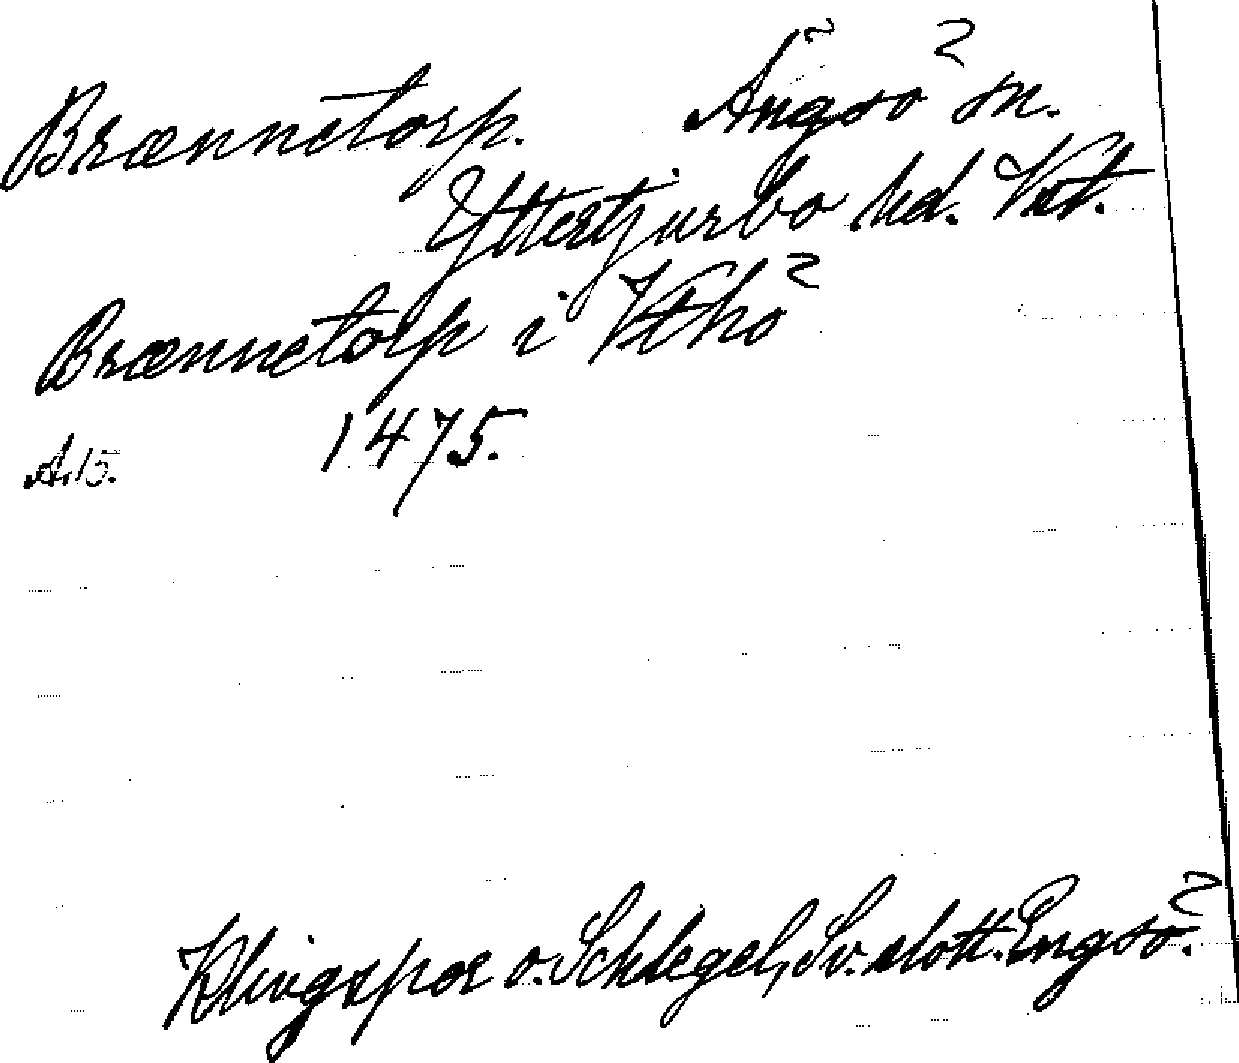 Brænnetorp. Ängsö sn.
Yttertjurbo hd. Vst.
Brænnetorp i Vthö
1475.
A.15.
Klingspor o. Schlegel, Sv. slott. Engsö.